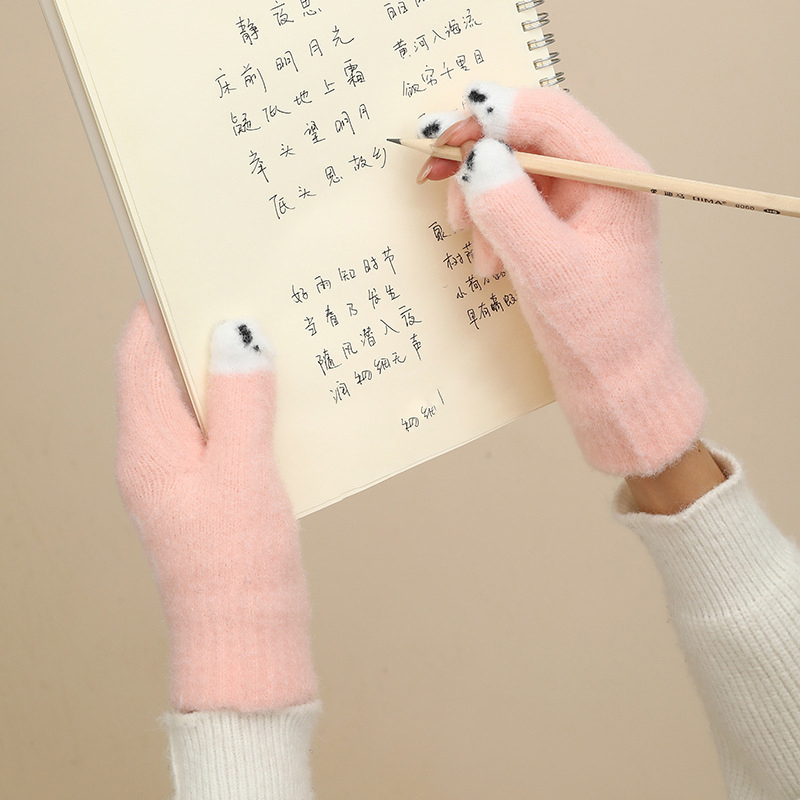 静夜思
床前明月光
疑似地上霜
举头望明月
低头思故乡
黄河入海流
欲穷千里目
好雨知时节
当春乃发生
随风潜入夜
润物细无声
物细
树荫
小荷
早有蜻
DIMA